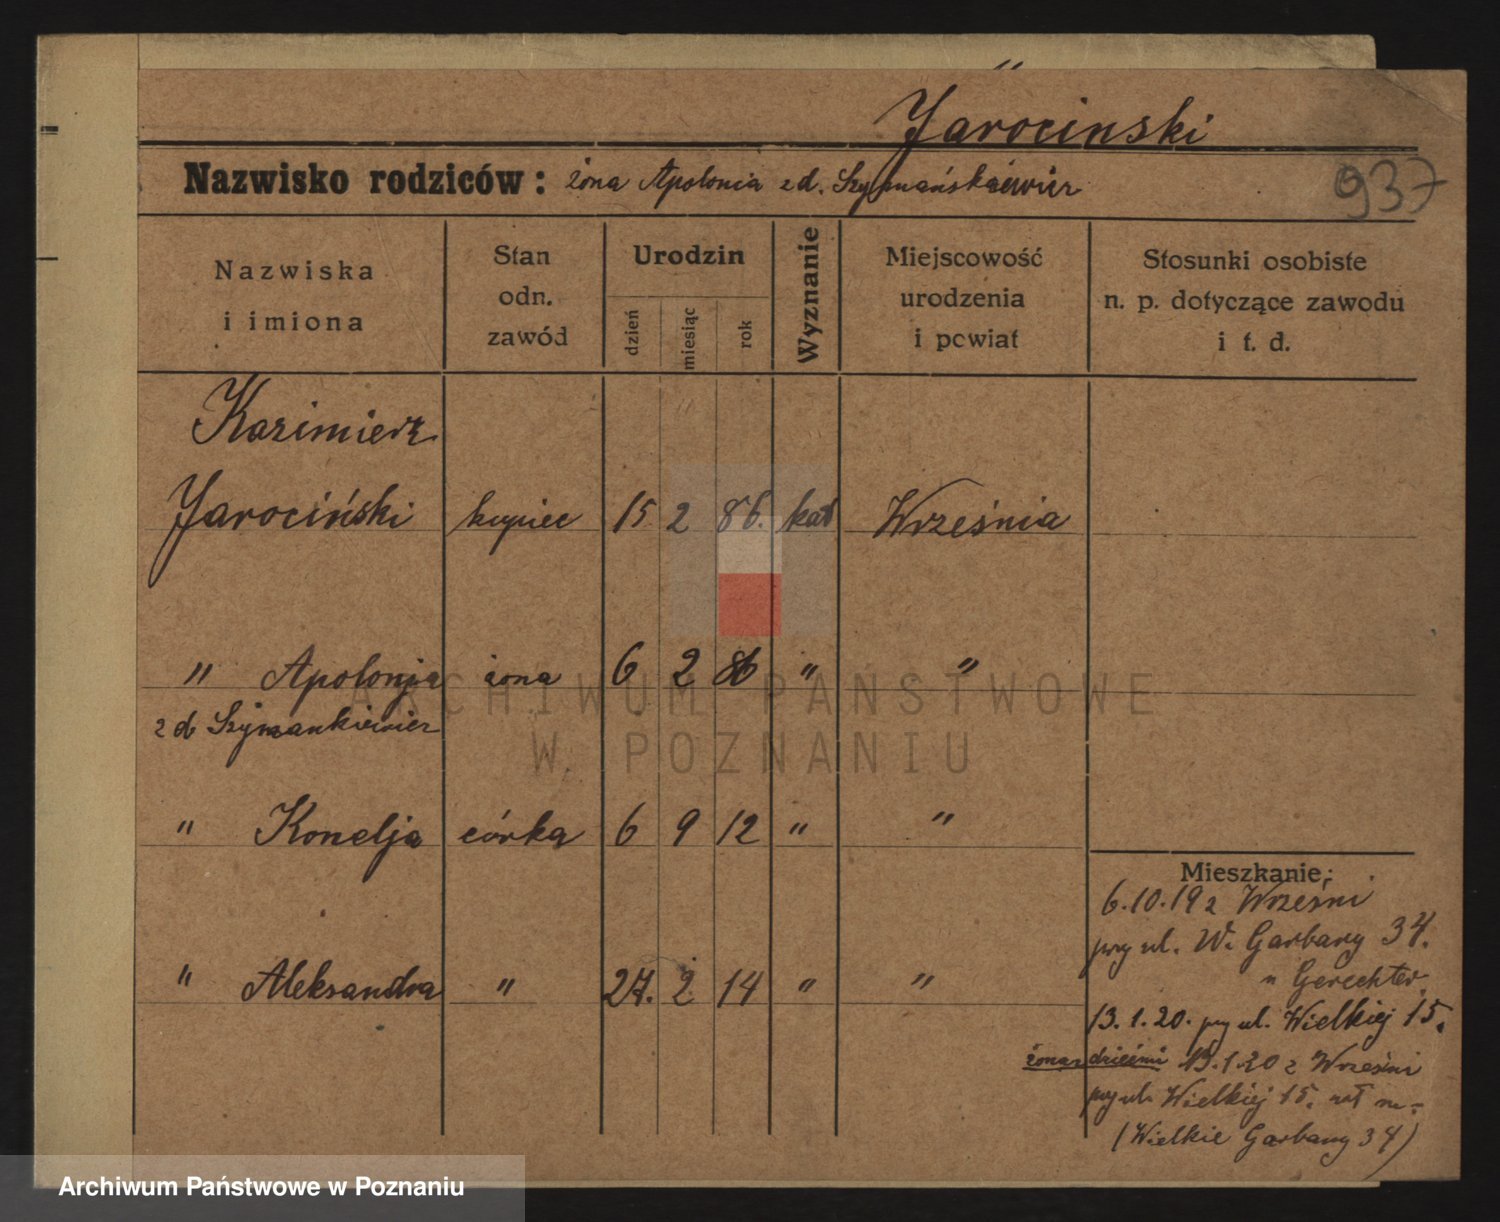 Jarocinski
Nazwisko rodziców: żona Apolonia z d. Szymańskiewicz
937
Nazwiska i imiona
Stan odn. zawód
Urodzin
dzień
miesiąc
rok
Wyznanie
Miejscowość urodzenia i powiat
Stosunki osobiste n. p. dotyczące zawodu i t. d.
Kazimierz
Jarociński kupiec 15 2 86. kat Września
" Apolonja żona 6 2 86 " "
z d Szymankiewicz
" Konelja córka 6 9 12 " "
" Aleksandra " 27. 2 14 " "
Mieszkanie:
6.10.19 z Wrześni
przy ul. W. Garbary 34.
u Gerechter.
13.1.20. przy ul. Wielkiej 15.
żona z dziećmi 13.1.20 z Wrześni
przy ul. Wielkiej 15.
(Wielkie Garbary 34)
ARCHIWUM PAŃSTWOWE
W POZNANIU
Archiwum Państwowe w Poznaniu